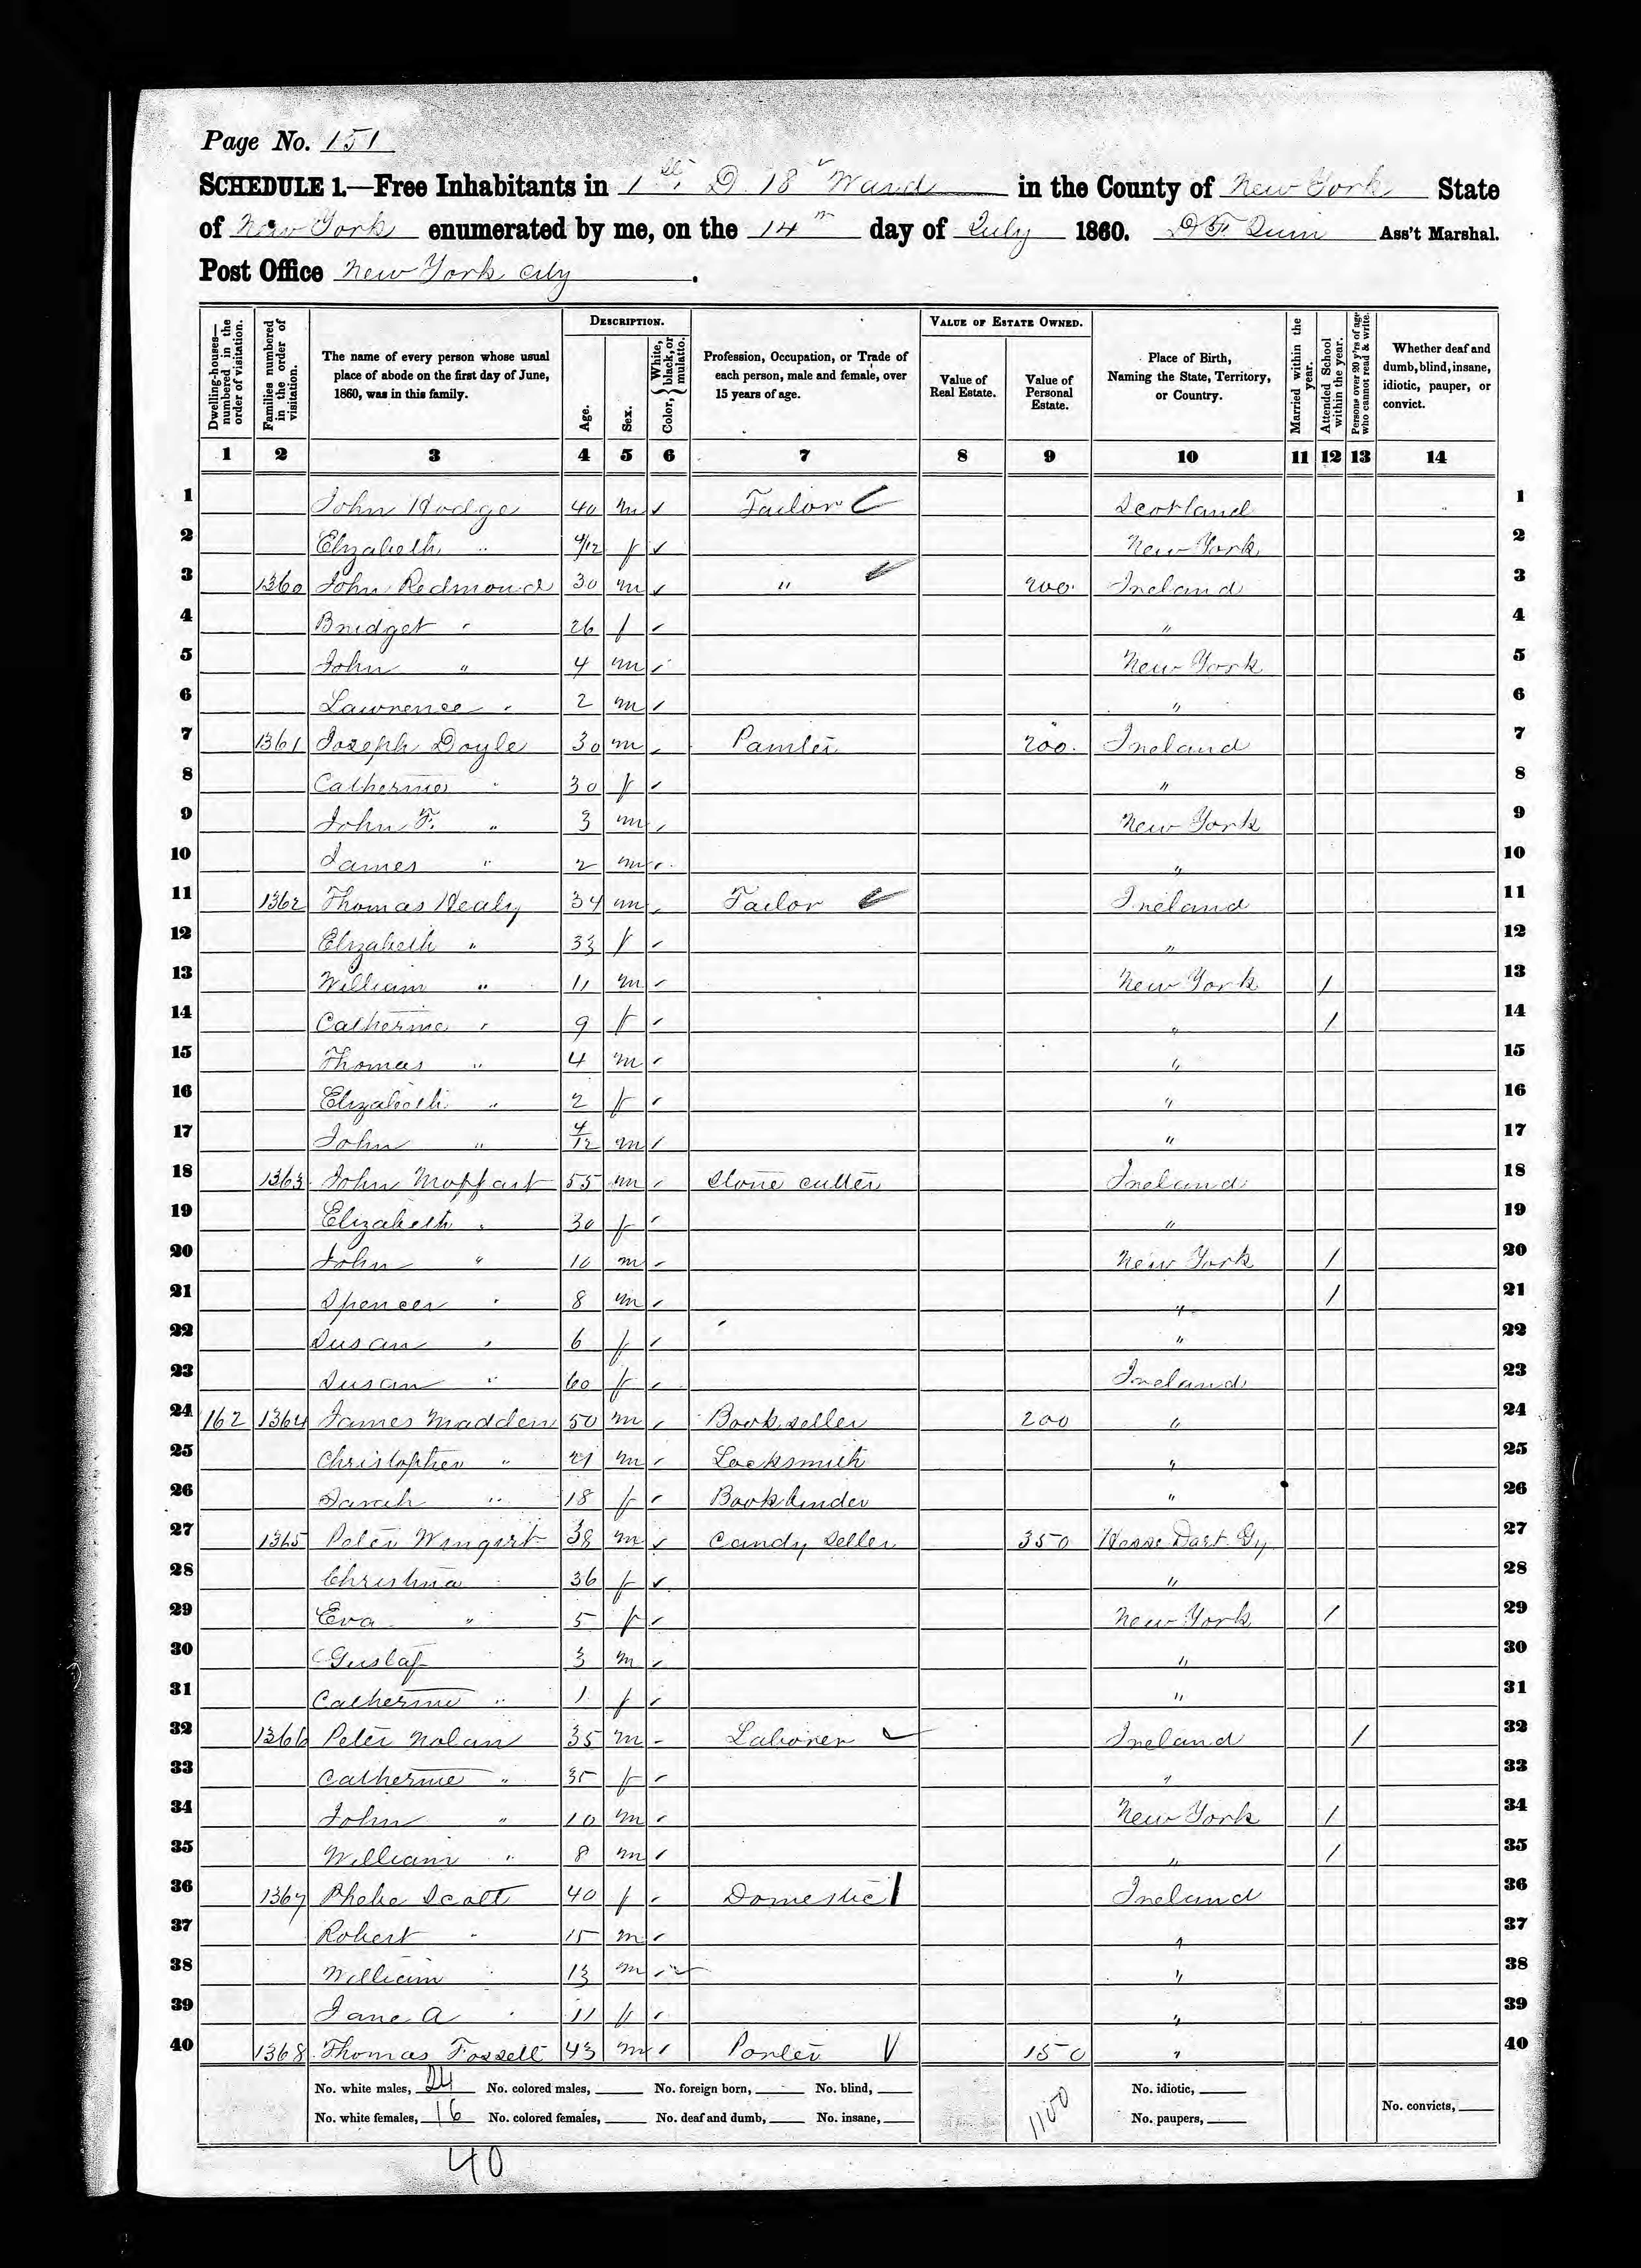 Page No. 151
SCHEDULE 1.—Free Inhabitants in 1st D. 18 Ward in the County of New York State
of New York enumerated by me, on the 14th day of July 1860. D F. Quin Ass't Marshal.
Post Office New York City.
DESCRIPTION. VALUE OF ESTATE OWNED.
Dwelling-houses—numbered in the order of visitation. Families numbered in the order of visitation. The name of every person whose usual place of abode on the first day of June, 1860, was in this family. Age. Sex. Color, { White, black, or mulatto. Profession, Occupation, or Trade of each person, male and female, over 15 years of age. Value of Real Estate. Value of Personal Estate. Place of Birth, Naming the State, Territory, or Country. Married within the year. Attended School within the year. Persons over 20 y'rs of age who cannot read & write. Whether deaf and dumb, blind, insane, idiotic, pauper, or convict.
1 2 3 4 5 6 7 8 9 10 11 12 13 14
1 John Hodge 40 m ✓ Tailor Scotland 1
2 Elizabeth " 4/12 f ✓ New York 2
3 1360 John Redmond 30 m ✓ " 200. Ireland 3
4 Bridget " 26 f ✓ " 4
5 John " 4 m ✓ New York 5
6 Lawrence " 2 m ✓ " 6
7 1361 Joseph Doyle 30 m ✓ Painter 200. Ireland 7
8 Catherine " 30 f ✓ " 8
9 John F. " 3 m ✓ New York 9
10 James " 2 m ✓ " 10
11 1362 Thomas Healy 34 m ✓ Tailor Ireland 11
12 Elizabeth " 33 f ✓ " 12
13 William " 11 m ✓ New York / 13
14 Catherine " 9 f ✓ " / 14
15 Thomas " 4 m ✓ " 15
16 Elizabeth " 2 f ✓ " 16
17 John " 4/12 m ✓ " 17
18 1363 John Moffart 55 m ✓ Stone cutter Ireland 18
19 Elizabeth " 30 f ✓ " 19
20 John " 10 m ✓ New York / 20
21 Spencer " 8 m ✓ " / 21
22 Susan " 6 f ✓ " 22
23 Susan " 60 f ✓ Ireland 23
24 162 1364 James Madden 50 m ✓ Bookseller 200 " 24
25 Christopher " 21 m ✓ Locksmith " 25
26 Sarah " 18 f ✓ Bookbinder " 26
27 1365 Peter Wingert 38 m ✓ Candy Seller 350 Hesse Dart. Gy 27
28 Christina " 36 f ✓ " 28
29 Eva " 5 f ✓ New York / 29
30 Gustaf 3 m ✓ " 30
31 Catherine " 1 f ✓ " 31
32 1366 Peter Nolan 35 m ✓ Laborer Ireland / 32
33 Catherine " 35 f ✓ " 33
34 John " 10 m ✓ New York / 34
35 William " 8 m ✓ " / 35
36 1367 Phebe Scott 40 f ✓ Domestic Ireland 36
37 Robert " 15 m ✓ " 37
38 William " 13 m ✓ " 38
39 Jane A " 11 f ✓ " 39
40 1368 Thomas Fossett 43 m ✓ Porter 150 " 40
No. white males, 24 No. colored males, No. foreign born, No. blind, No. idiotic,
No. white females, 16 No. colored females, No. deaf and dumb, No. insane, 1100 No. paupers, No. convicts,
40